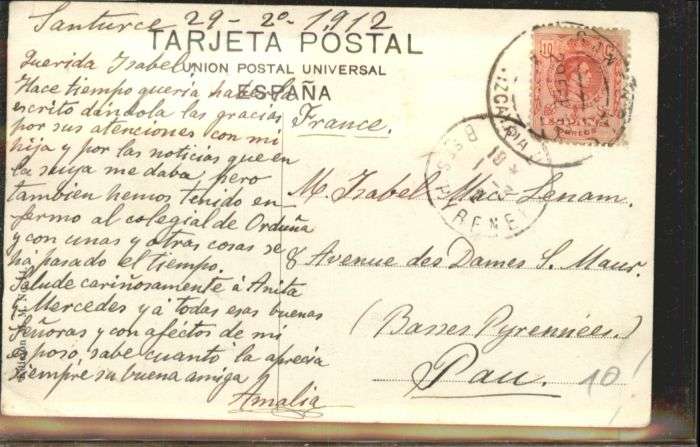 Santurce 29-2º-1912
TARJETA POSTAL
UNION POSTAL UNIVERSAL
ESPAÑA
Querida Isabel:
Hace tiempo queria haberla
escrito dándola las gracias
por sus atenciones con mi
hija y por las noticias que en
la suya me daba, pero
tambien hemos tenido en-
fermo al colegial de Orduña
y con unas y otras cosas se
ha pasado el tiempo.
Salude cariñosamente á Anita
y Mercedes y á todas esas buenas
Señoras y con afectos de mi
esposo, sabe cuanto la aprecia
siempre su buena amiga
Amalia
France.
M. Isabel Mac-Lenam.
8 Avenue des Dames S. Maur.
(Basses Pyrennées.)
Pau.
10
10
CORREOS